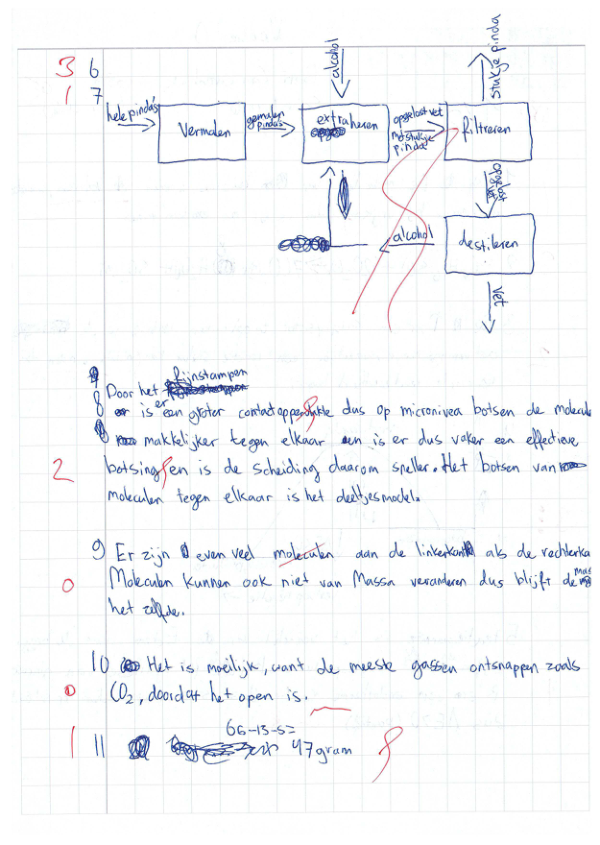 3 6
1 7
alcohol
stukje pinda
hele pinda's
Vermalen
gemalen pinda's
extraheren
opgelost vet
met stukje
pinda
filtreren
opgelost
vet
alcohol
destileren
vet
fijnstampen
8 Door het
er is een groter contactoppervlakte dus op micronivea botsen de molecule
makkelijker tegen elkaar en is er dus vaker een effectieve
2 botsing en is de scheiding daarom sneller. Het botsen van
moleculen tegen elkaar is het deeltjesmodel.
9 Er zijn evenveel moleculen aan de linkerkant als de rechterka
0 Moleculen kunnen ook niet van Massa veranderen dus blijft de mas
het zelfde.
10 Het is moeilijk, want de meeste gassen ontsnappen zoals
0 CO2, doordat het open is.
66-13-5=
1 11 47 gram